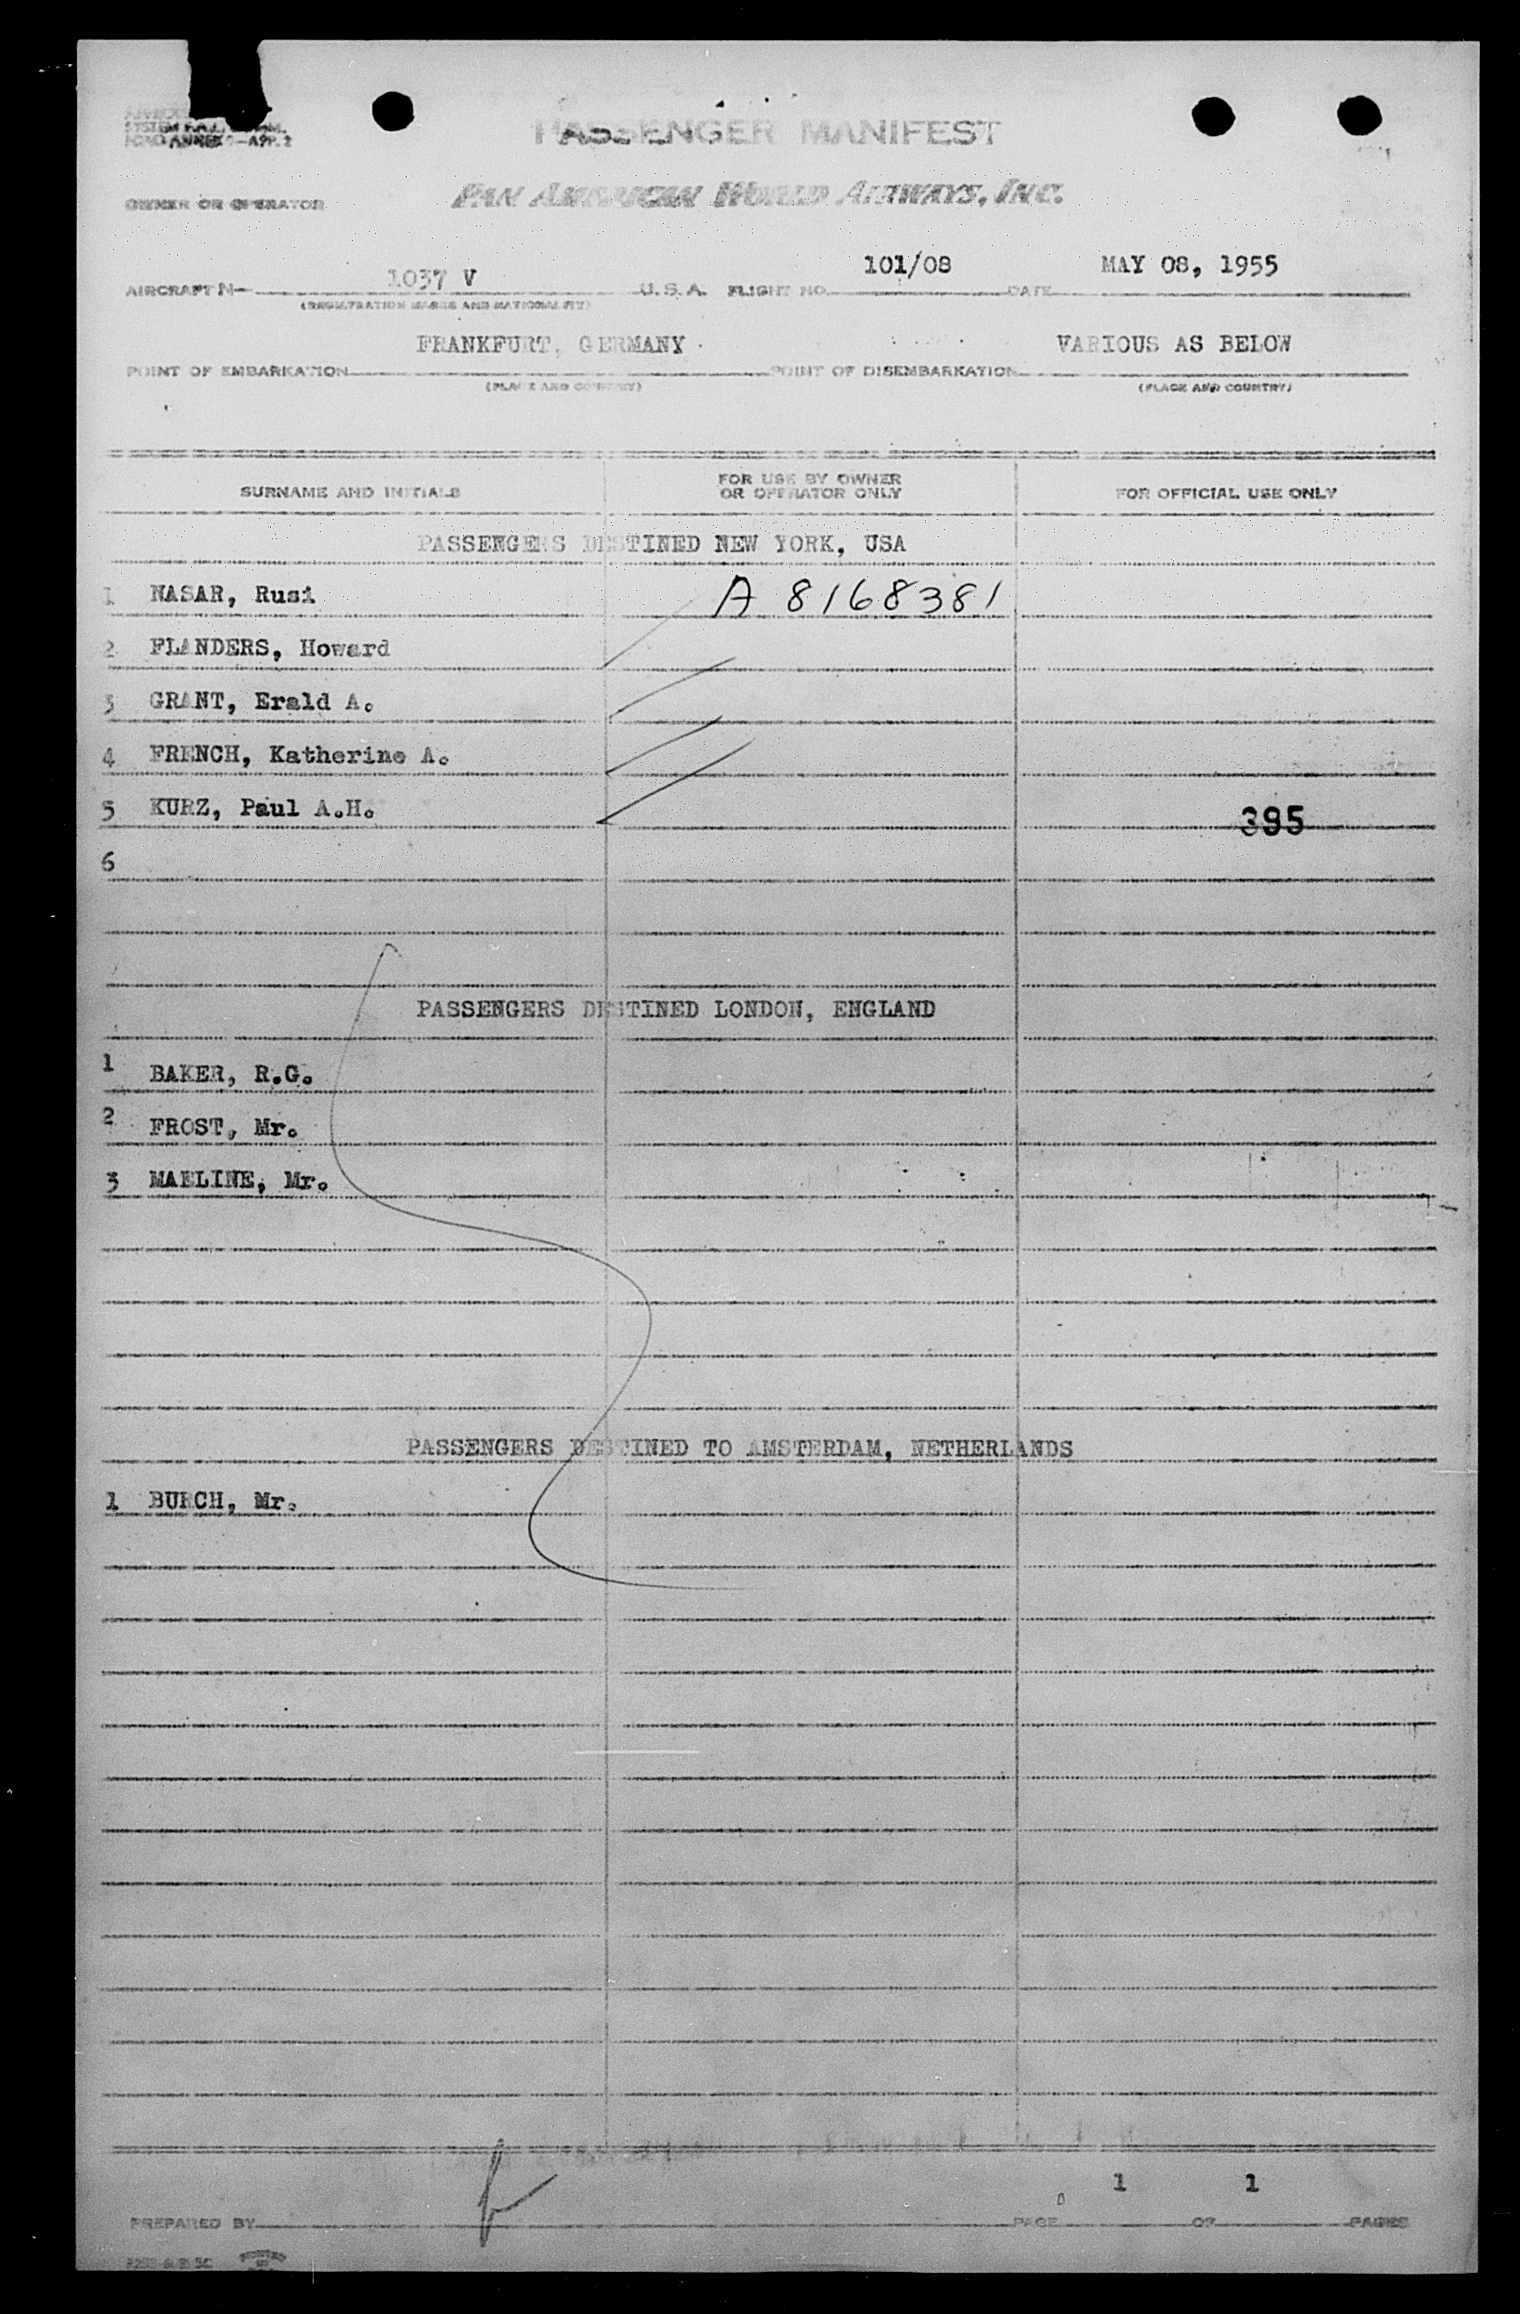 PASSENGER MANIFEST
OWNER OR OPERATOR PAN AMERICAN WORLD AIRWAYS, INC.
AIRCRAFT N- 1037 V U.S.A. FLIGHT NO. 101/08 DATE MAY 08, 1955
(REGISTRATION MARKS AND NATIONALITY)
POINT OF EMBARKATION FRANKFURT, GERMANY POINT OF DISEMBARKATION VARIOUS AS BELOW
(PLACE AND COUNTRY) (PLACE AND COUNTRY)
SURNAME AND INITIALS FOR USE BY OWNER OR OPERATOR ONLY FOR OFFICIAL USE ONLY
PASSENGERS DESTINED NEW YORK, USA
1 NASAR, Rusi A 8168381
2 FLANDERS, Howard
3 GRANT, Erald A.
4 FRENCH, Katherine A.
5 KURZ, Paul A.H. 395
6
PASSENGERS DESTINED LONDON, ENGLAND
1 BAKER, R.G.
2 FROST, Mr.
3 MAELINE, Mr.
PASSENGERS DESTINED TO AMSTERDAM, NETHERLANDS
1 BURCH, Mr.
PREPARED BY PAGE 1 OF 1 PAGES